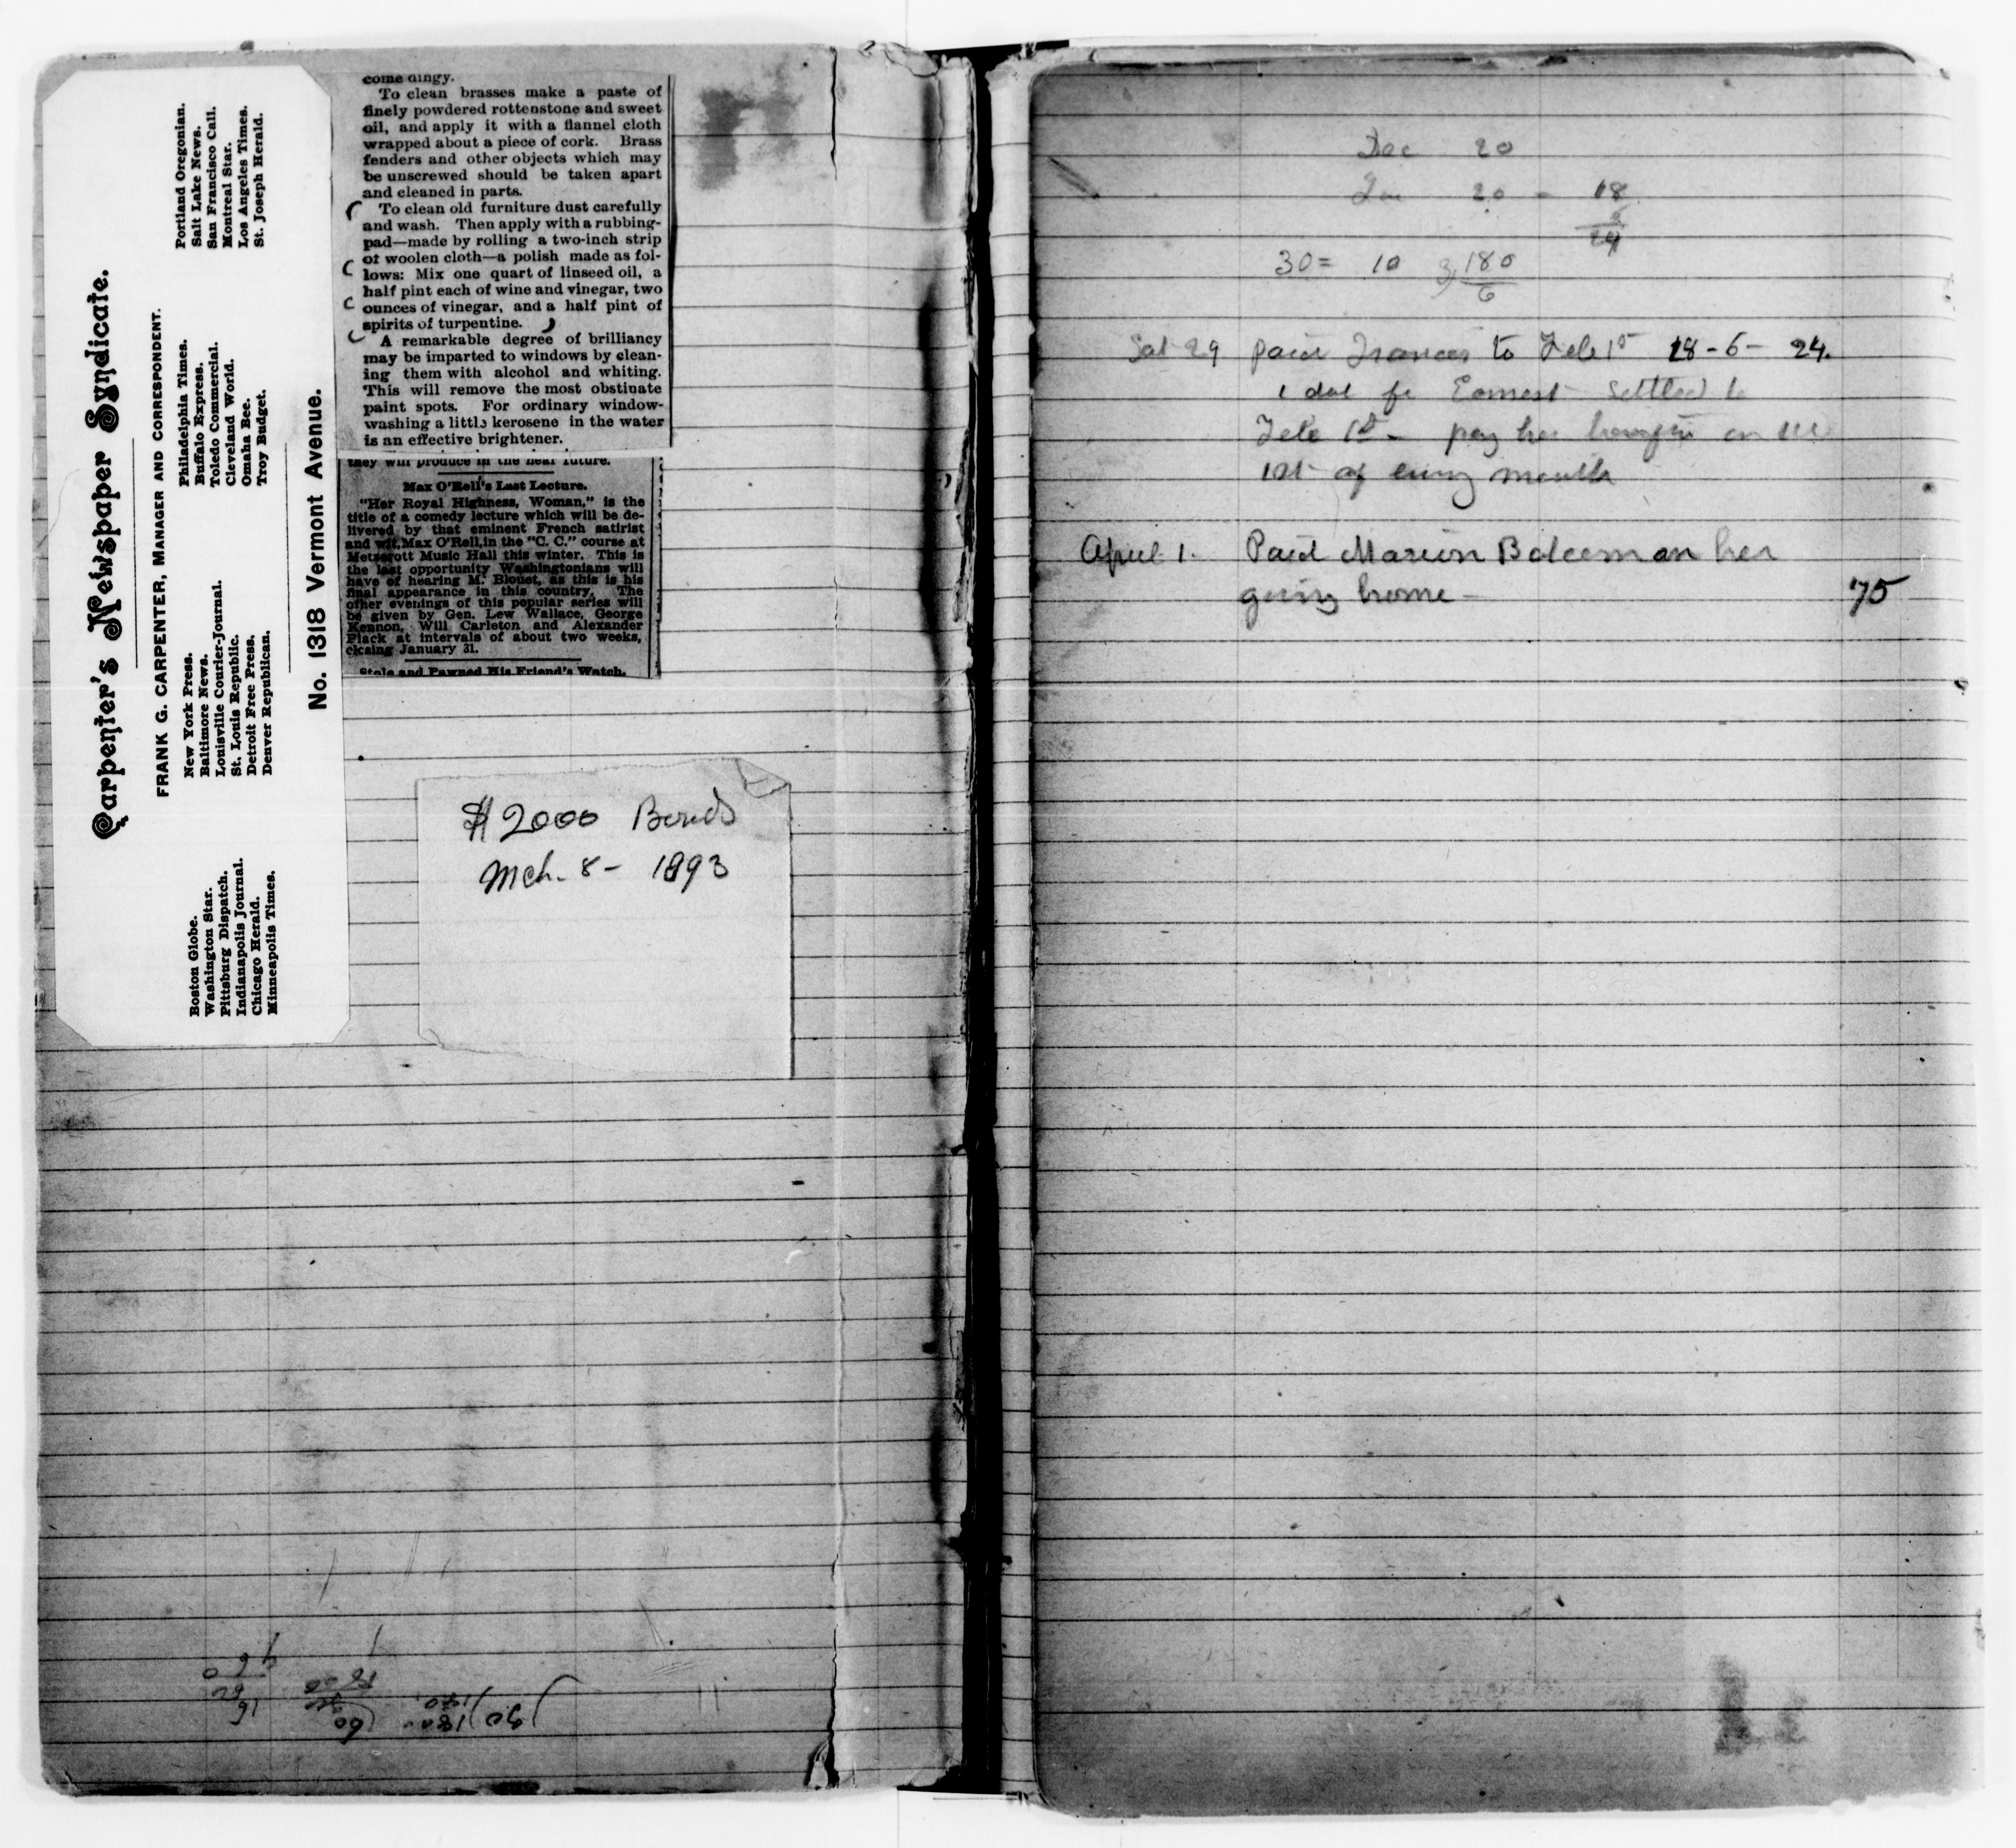 Carpenter's Newspaper Syndicate.
FRANK G. CARPENTER, MANAGER AND CORRESPONDENT.
Boston Globe.
Washington Star.
Pittsburg Dispatch.
Indianapolis Journal.
Chicago Herald.
Minneapolis Times.
New York Press.
Baltimore News.
Louisville Courier-Journal.
St. Louis Republic.
Detroit Free Press.
Denver Republican.
Philadelphia Times.
Buffalo Express.
Toledo Commercial.
Cleveland World.
Omaha Bee.
Troy Budget.
Portland Oregonian.
Salt Lake News.
San Francisco Call.
Montreal Star.
Los Angeles Times.
St. Joseph Herald.
No. 1318 Vermont Avenue.
come dingy.
To clean brasses make a paste of
finely powdered rottenstone and sweet
oil, and apply it with a flannel cloth
wrapped about a piece of cork. Brass
fenders and other objects which may
be unscrewed should be taken apart
and cleaned in parts.
To clean old furniture dust carefully
and wash. Then apply with a rubbing-
pad—made by rolling a two-inch strip
of woolen cloth—a polish made as fol-
lows: Mix one quart of linseed oil, a
half pint each of wine and vinegar, two
ounces of vinegar, and a half pint of
spirits of turpentine.
A remarkable degree of brilliancy
may be imparted to windows by clean-
ing them with alcohol and whiting.
This will remove the most obstinate
paint spots. For ordinary window-
washing a little kerosene in the water
is an effective brightener.
they will produce in the near future.
Max O'Rell's Last Lecture.
"Her Royal Highness, Woman," is the
title of a comedy lecture which will be de-
livered by that eminent French satirist
and wit, Max O'Rell, in the "C. C." course at
Metzerott Music Hall this winter. This is
the last opportunity Washingtonians will
have of hearing M. Blouet, as this is his
final appearance in this country. The
other evenings of this popular series will
be given by Gen. Lew Wallace, George
Kennon, Will Carleton and Alexander
Black at intervals of about two weeks,
closing January 31.
Stole and Pawned His Friend's Watch.
$2000 Bonds
Mch. 8 - 1893
Dec 20
Jan 20 - 18
30 = 10 3) 180
6
Sat 29 paid Frances to Feb 1st 18 - 6 - 24.
1 dol Earnest Settled to
Feb 1st - pay her on
1st of every month
April 1. Paid Marion on her
going home - 75
90) 180